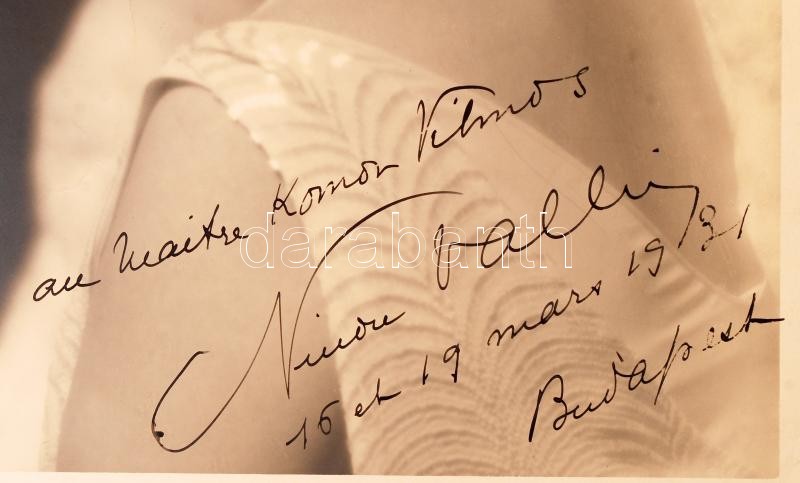 au Maitre Komor Vilmos
Ninon Vallin
16 et 19 mars 1931
Budapest
darabanth